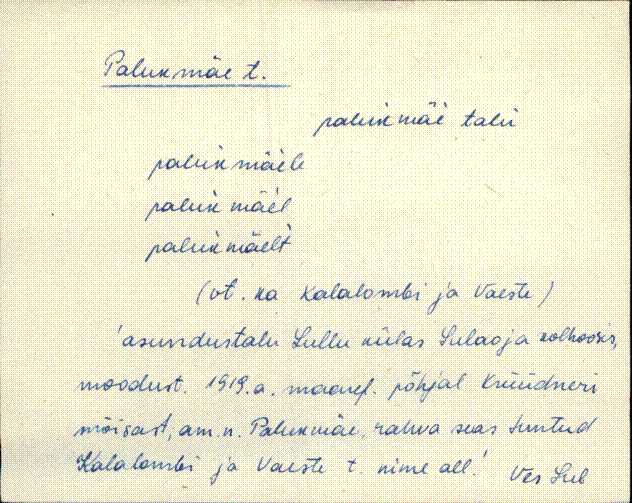 Palukmäe t.
paluk mäè talù
paluk mäele
paluk mäel
paluk mäelt
(vt. ka Kalalombi ja Vaeste)
'asundustalu Sullu külas Sulaoja kolhoosis,
moodust. 1919.a. maaref. põhjal Krüüdneri
mõisast, am.n. Palukmäe, rahva seas tuntud
Kalalombi ja Vaeste t. nime all.' Ves Sul